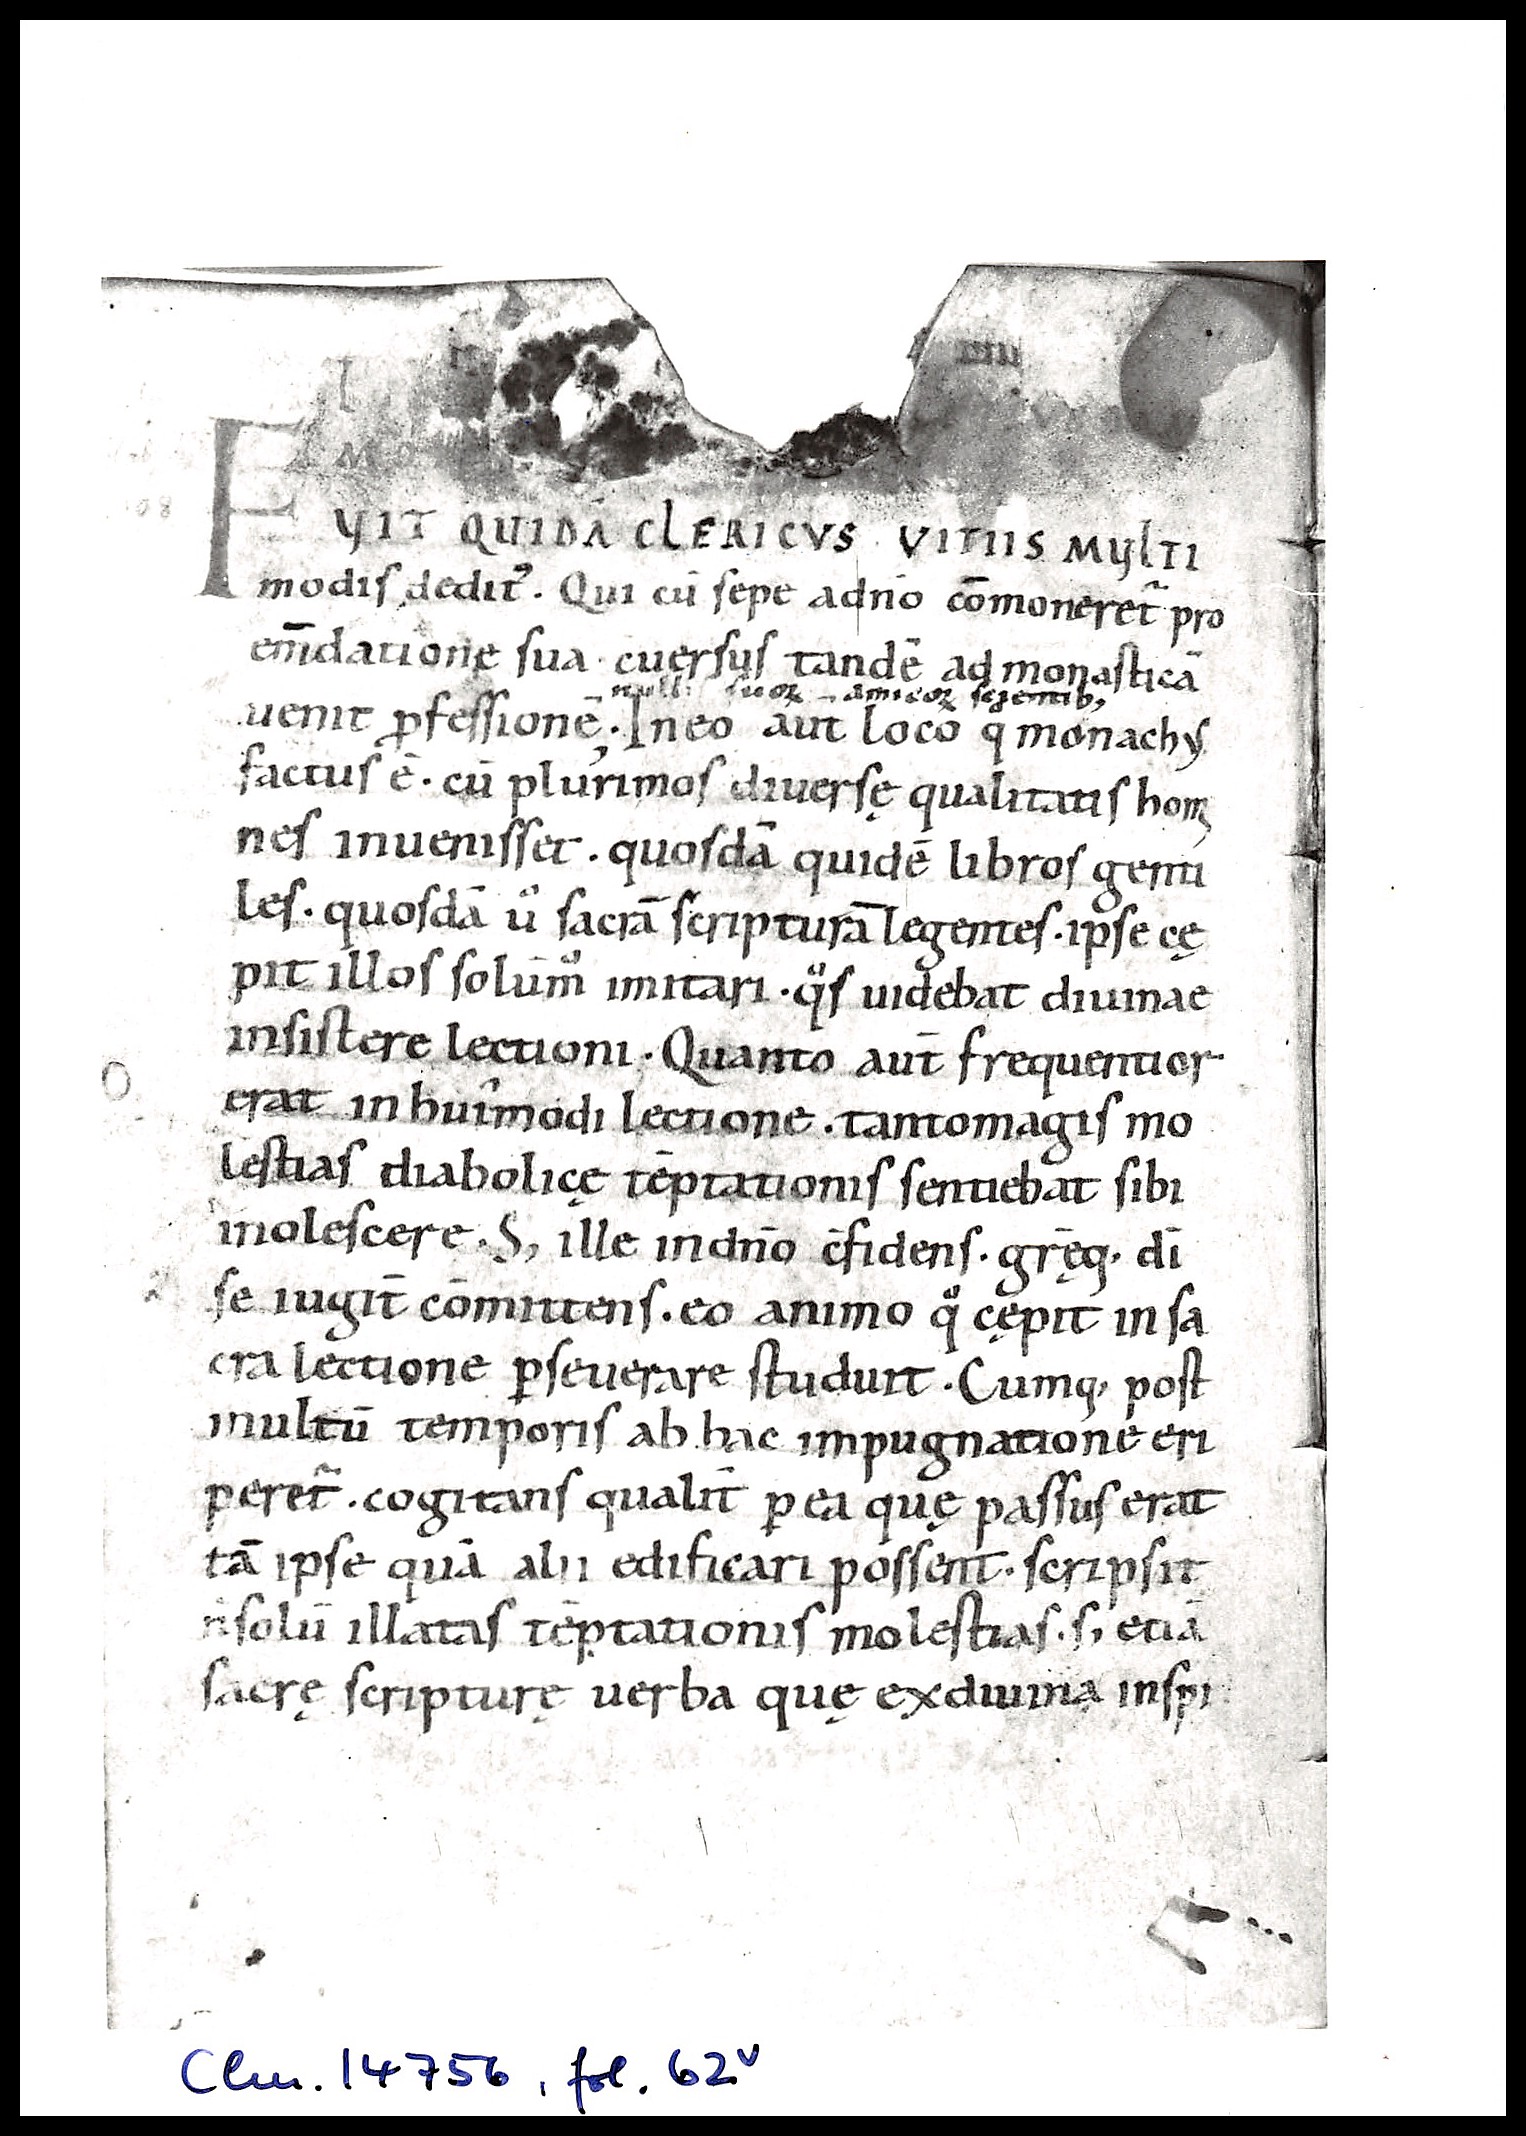 FUIT QUIDĀ CLERICVS · VITIIS MULTI
modis dedit᾿. Qui cū sepe adn̄o cōmoneret᷑ pro
em̄datione sua · c̄uersus tandē ad monasticā
nulli suoꝝ amicoꝝ scientib;
uenit ꝓfessionē. In eo aūt loco q monachus
factus ē. cū plurimos diuersę qualitatis homi
nes inuenisset. quosdā quidē libros genti
les. quosdā u᷎ sacrā scripturā legentes. ipse cę
pit illos solūm̊ imitari. q̊s uidebat diuinae
insistere lectioni. Quanto aūt frequentior
erat in huiᷤmodi lectione. tantomagis mo
lestias diabolicę tēptationis sentiebat sibi
inolescere. S; ille in dn̄o c̄fidens. gr̄ęq; dī
se iugit̄ cōmittens. eo animo q̊ cępit in sa
cra lectione ꝑseuerare studuit. Cumq; post
multū temporis ab hac impugnatione eri
peret᷑. cogitans qualit̄ ꝑ ea quę passus erat
tā ipse quā alii edificari possent. scripsit
n̄ solū illatas tēptationis molestias. s; etiā
sacrę scripturę uerba quę ex diuina inspi
Clm. 14756, fol. 62ᵛ